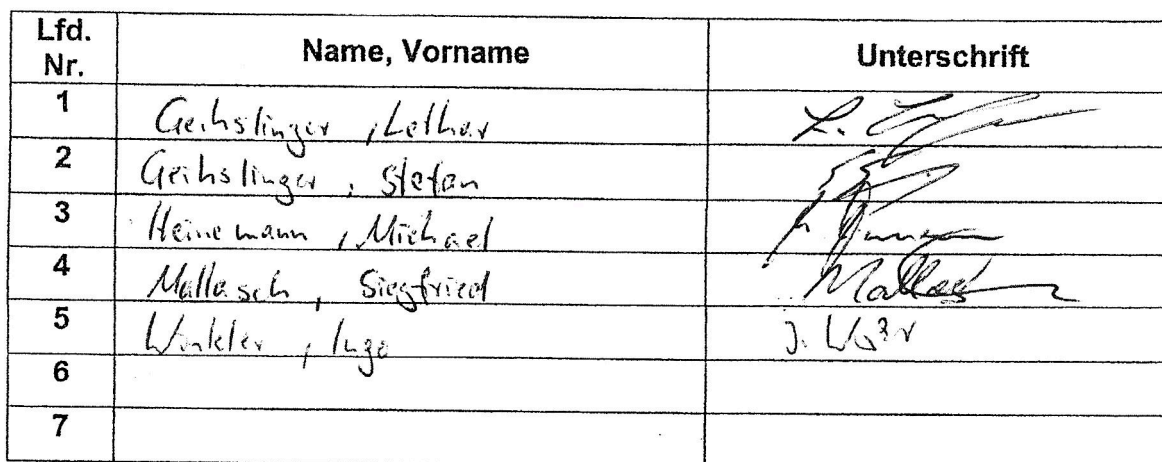 Lfd. Nr. Name, Vorname Unterschrift
1 Geihslinger, Lothar L.
2 Geihslinger, Stefan
3 Heinemann, Michael
4 Mallasch, Siegfried Mallasch
5 Winkler, Ingo J.
6
7